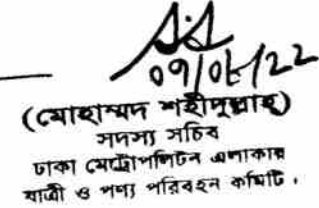 09/06/22
(মোহাম্মদ শহীদুল্লাহ)
সদস্য সচিব
ঢাকা মেট্রোপলিটন এলাকার
যাত্রী ও পণ্য পরিবহন কমিটি।